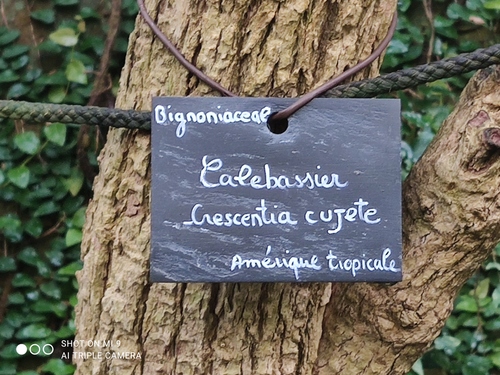 Bignoniaceae
Calebassier
Crescentia cujete
Amérique tropicale
SHOT ON ML9
AI TRIPLE CAMERA